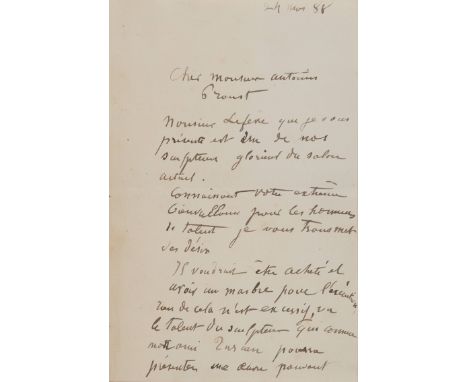 Mai 88
Cher monsieur antonin
Proust
Monsieur Lefèvre que je vous
présente est un de nos
sculpteurs glorieux du salon
actuel.
Connaissant votre extrême
pour les hommes
de talent je vous transmet
ses désirs
Il voudrait être acheté et
avoir un marbre pour l'exécution
de cela n'est excessif, vu
le talent du sculpteur qui comme
notre ami pourra
présenter une œuvre pouvant